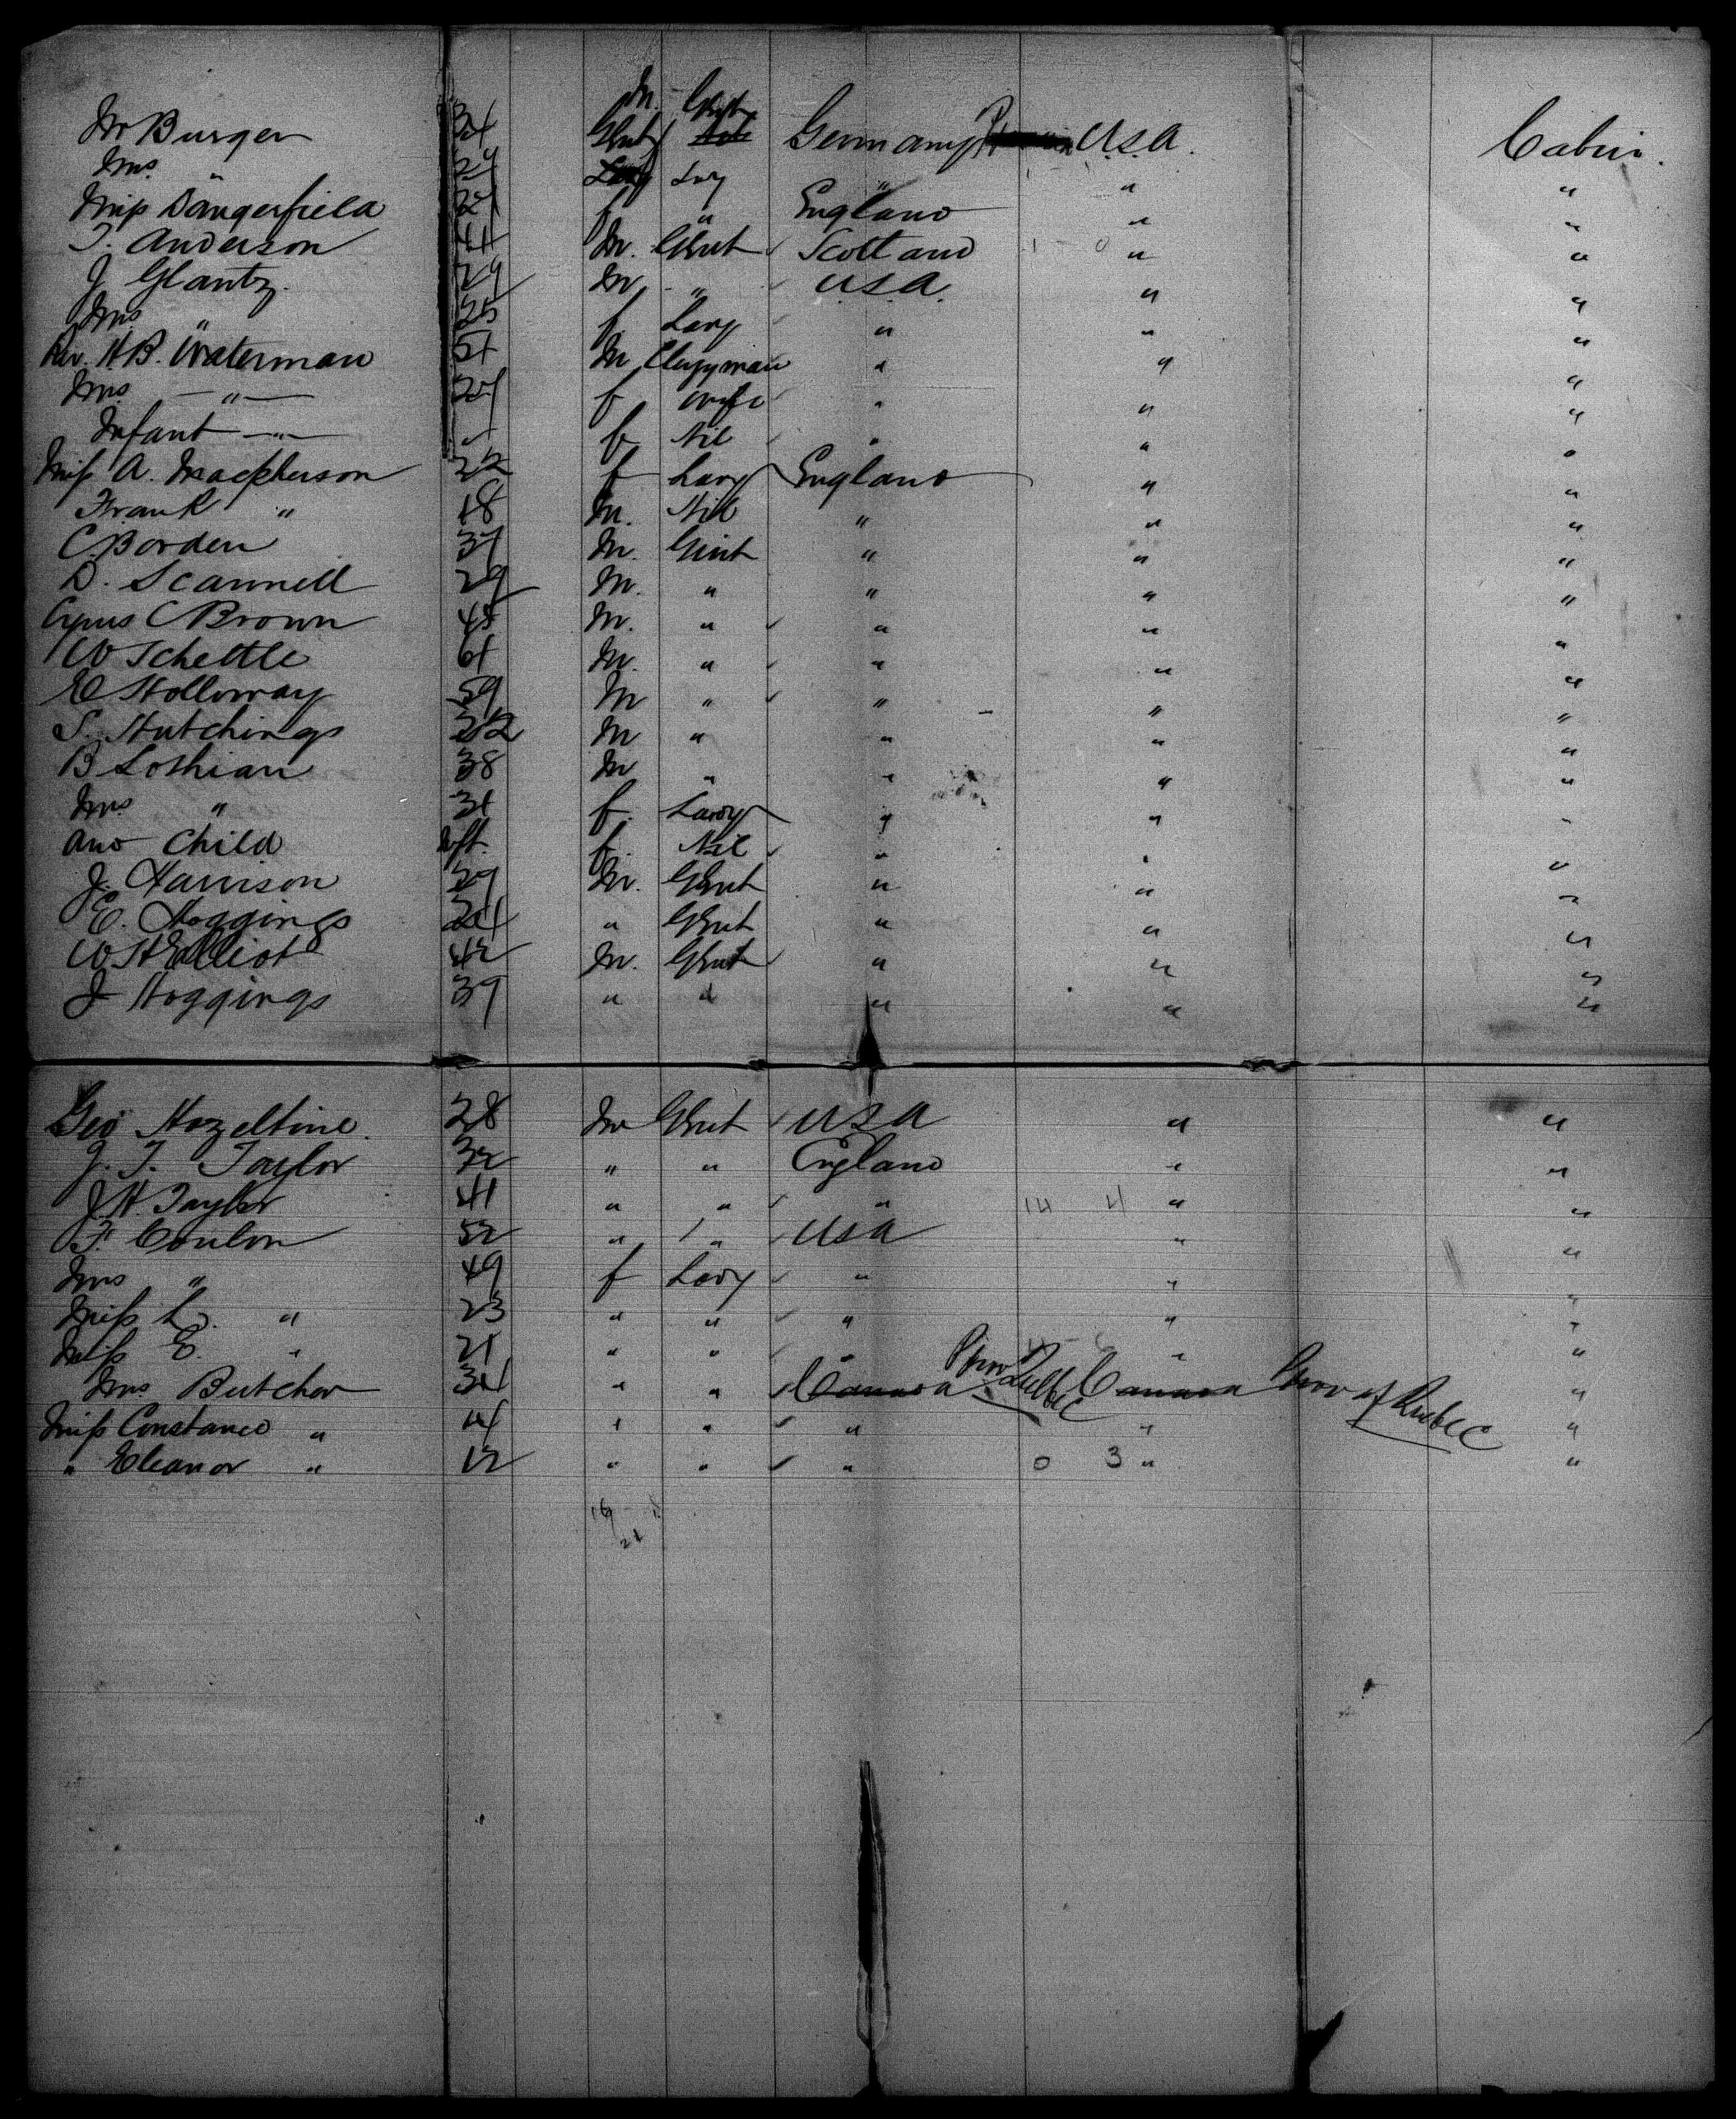 Mr Burger 34 M. Gent Germany U.S.A. Cabin.
Mrs " 29 Lady " " "
Miss Dangerfield 24 f " England " "
T. Anderson 44 M. Gent Scotland " "
J Glantz. 29 M " U.S.A. " "
Mrs " 25 f. Lady " " "
Rev. H.B. Waterman 51 M Clergyman " " "
Mrs — " — 27 f wife " " "
Infant — " — f Nil " " "
Miss A. Macpherson 22 f Lady England " "
Frank " 18 M. Nil " " "
C Borden 37 M. Gent " " "
D. Scannell 29 M. " " " "
Cyrus C Brown 45 M. " " " "
W Schettle 61 M. " " " "
E Holloway 59 M " " " "
S. Hutchings 32 M " " " "
B Lothian 38 M " " " "
Mrs " 31 f. Lady " " "
and Child Inft. f. Nil " " "
J. Harrison 29 M. Gent " " "
E. Hoggings 24 " Gent " " "
W H Elliot 42 M. Gent " " "
J Hoggings 39 " " " " "
Geo Hazeltine. 28 M Gent USA " "
J. T. Taylor 32 " " England " "
J.H. Taylor 41 " " " 14 4 " "
F. Conlon 52 " " USA " "
Mrs " 49 f Lady " " "
Miss L. " 23 " " " " "
Miss E. " 21 " " " " "
Mrs Butcher 34 " " Canada Prov Quebec Canada Prov of Quebec "
Miss Constance " 14 " " " " "
" Eleanor " 12 " " " 0 3 " "